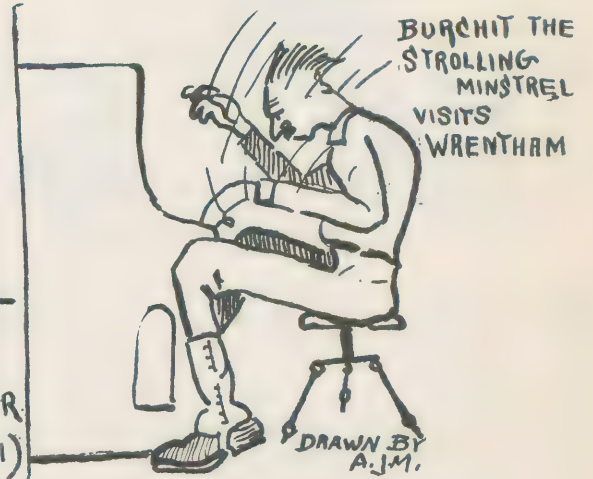 BURCHIT THE
STROLLING
MINSTREL
VISITS
WRENTHAM
R
1)
DRAWN BY
A.J.M.